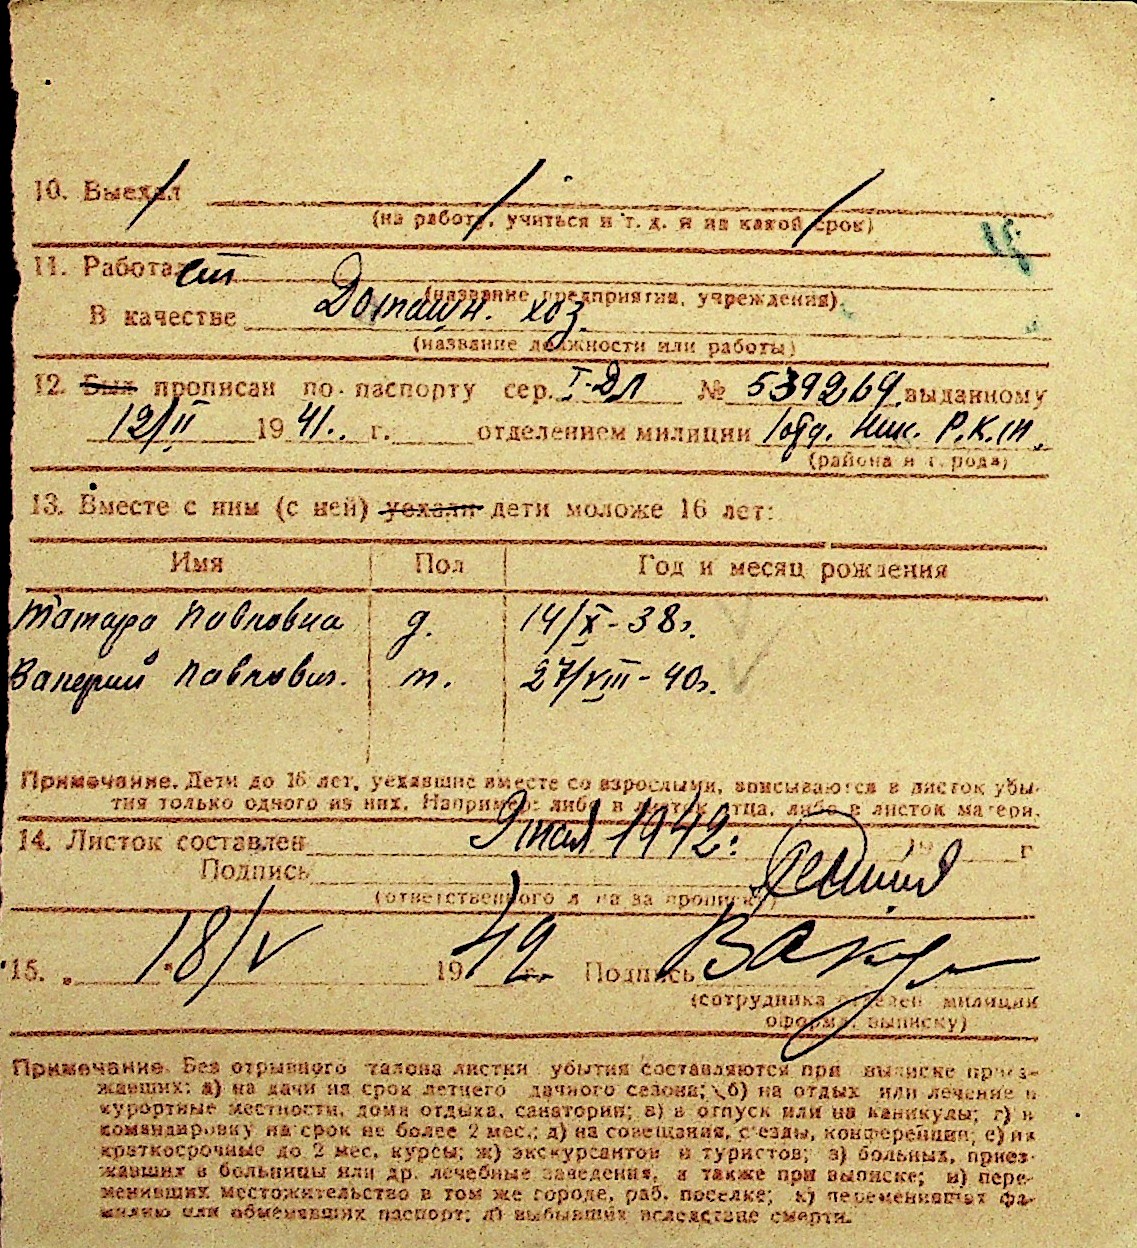 10. Выехал
(на работу, учиться и т. д. и на какой срок)
11. Работает
(название предприятия, учреждения)
В качестве Домашн. хоз.
(название должности или работы)
12. Был прописан по паспорту сер. I-ДЛ № 539269 выданному
12/II 1941. г. отделением милиции 1 отд. Ник. Р.К.М.
(района и города)
13. Вместе с ним (с ней) уехали дети моложе 16 лет:
Имя Пол Год и месяц рождения
Тамара Павловна д. 14/X-38г.
Валерий Павлович. м. 27/VIII-40г.
Примечание. Дети до 16 лет, уехавшие вместе со взрослыми, вписываются в листок убы-
тия только одного из них. Например: либо в листок отца, либо в листок матери.
14. Листок составлен 9 мая 1942. 19 г
Подпись
(ответственного л на за прописку)
15. „ 18/V " 1942 г. Подпись
(сотрудника отделен. милиции
оформл. выписку)
Примечание. Без отрывного талона листки убытия составляются при выписке приез-
жавших: а) на дачи на срок летнего дачного сезона; б) на отдых или лечение в
курортные местности, дома отдыха, санатории; в) в отпуск или на каникулы; г) в
командировку на срок не более 2 мес.; д) на совещания, съезды, конференции; е) на
краткосрочные до 2 мес. курсы; ж) экскурсантов и туристов; з) больных, приез-
жавших в больницы или др. лечебные заведения, а также при выписке; и) пере-
менивших местожительство в том же городе, раб. поселке; к) переменивших фа-
милию или обменявших паспорт; л) выбывших вследствие смерти.